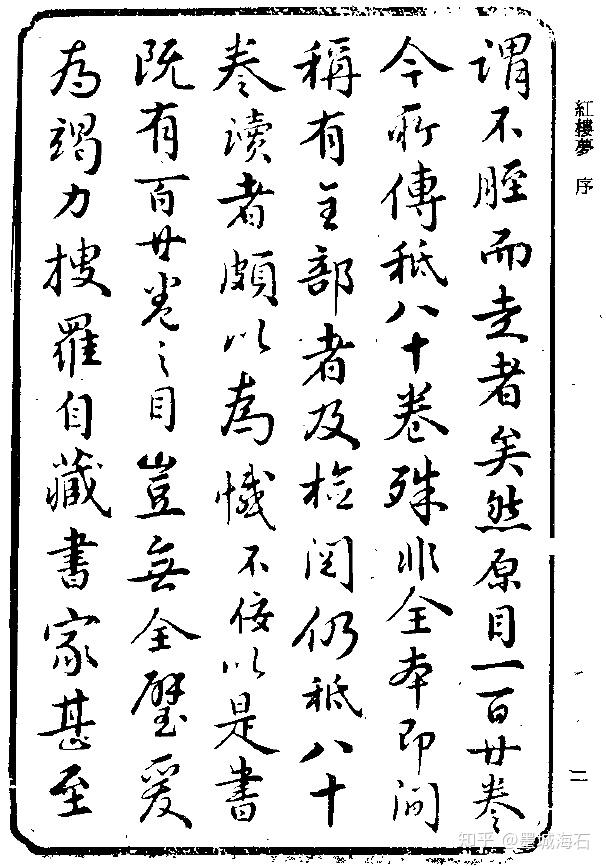 紅樓夢 序
二
謂不脛而走者矣然原目一百廿卷
今所傳秪八十卷殊非全本即間
稱有全部者及檢閱仍秪八十
卷讀者頗以為憾不佞以是書
既有百廿卷之目豈無全璧爰
為竭力搜羅自藏書家甚至
知乎 @墨城海石